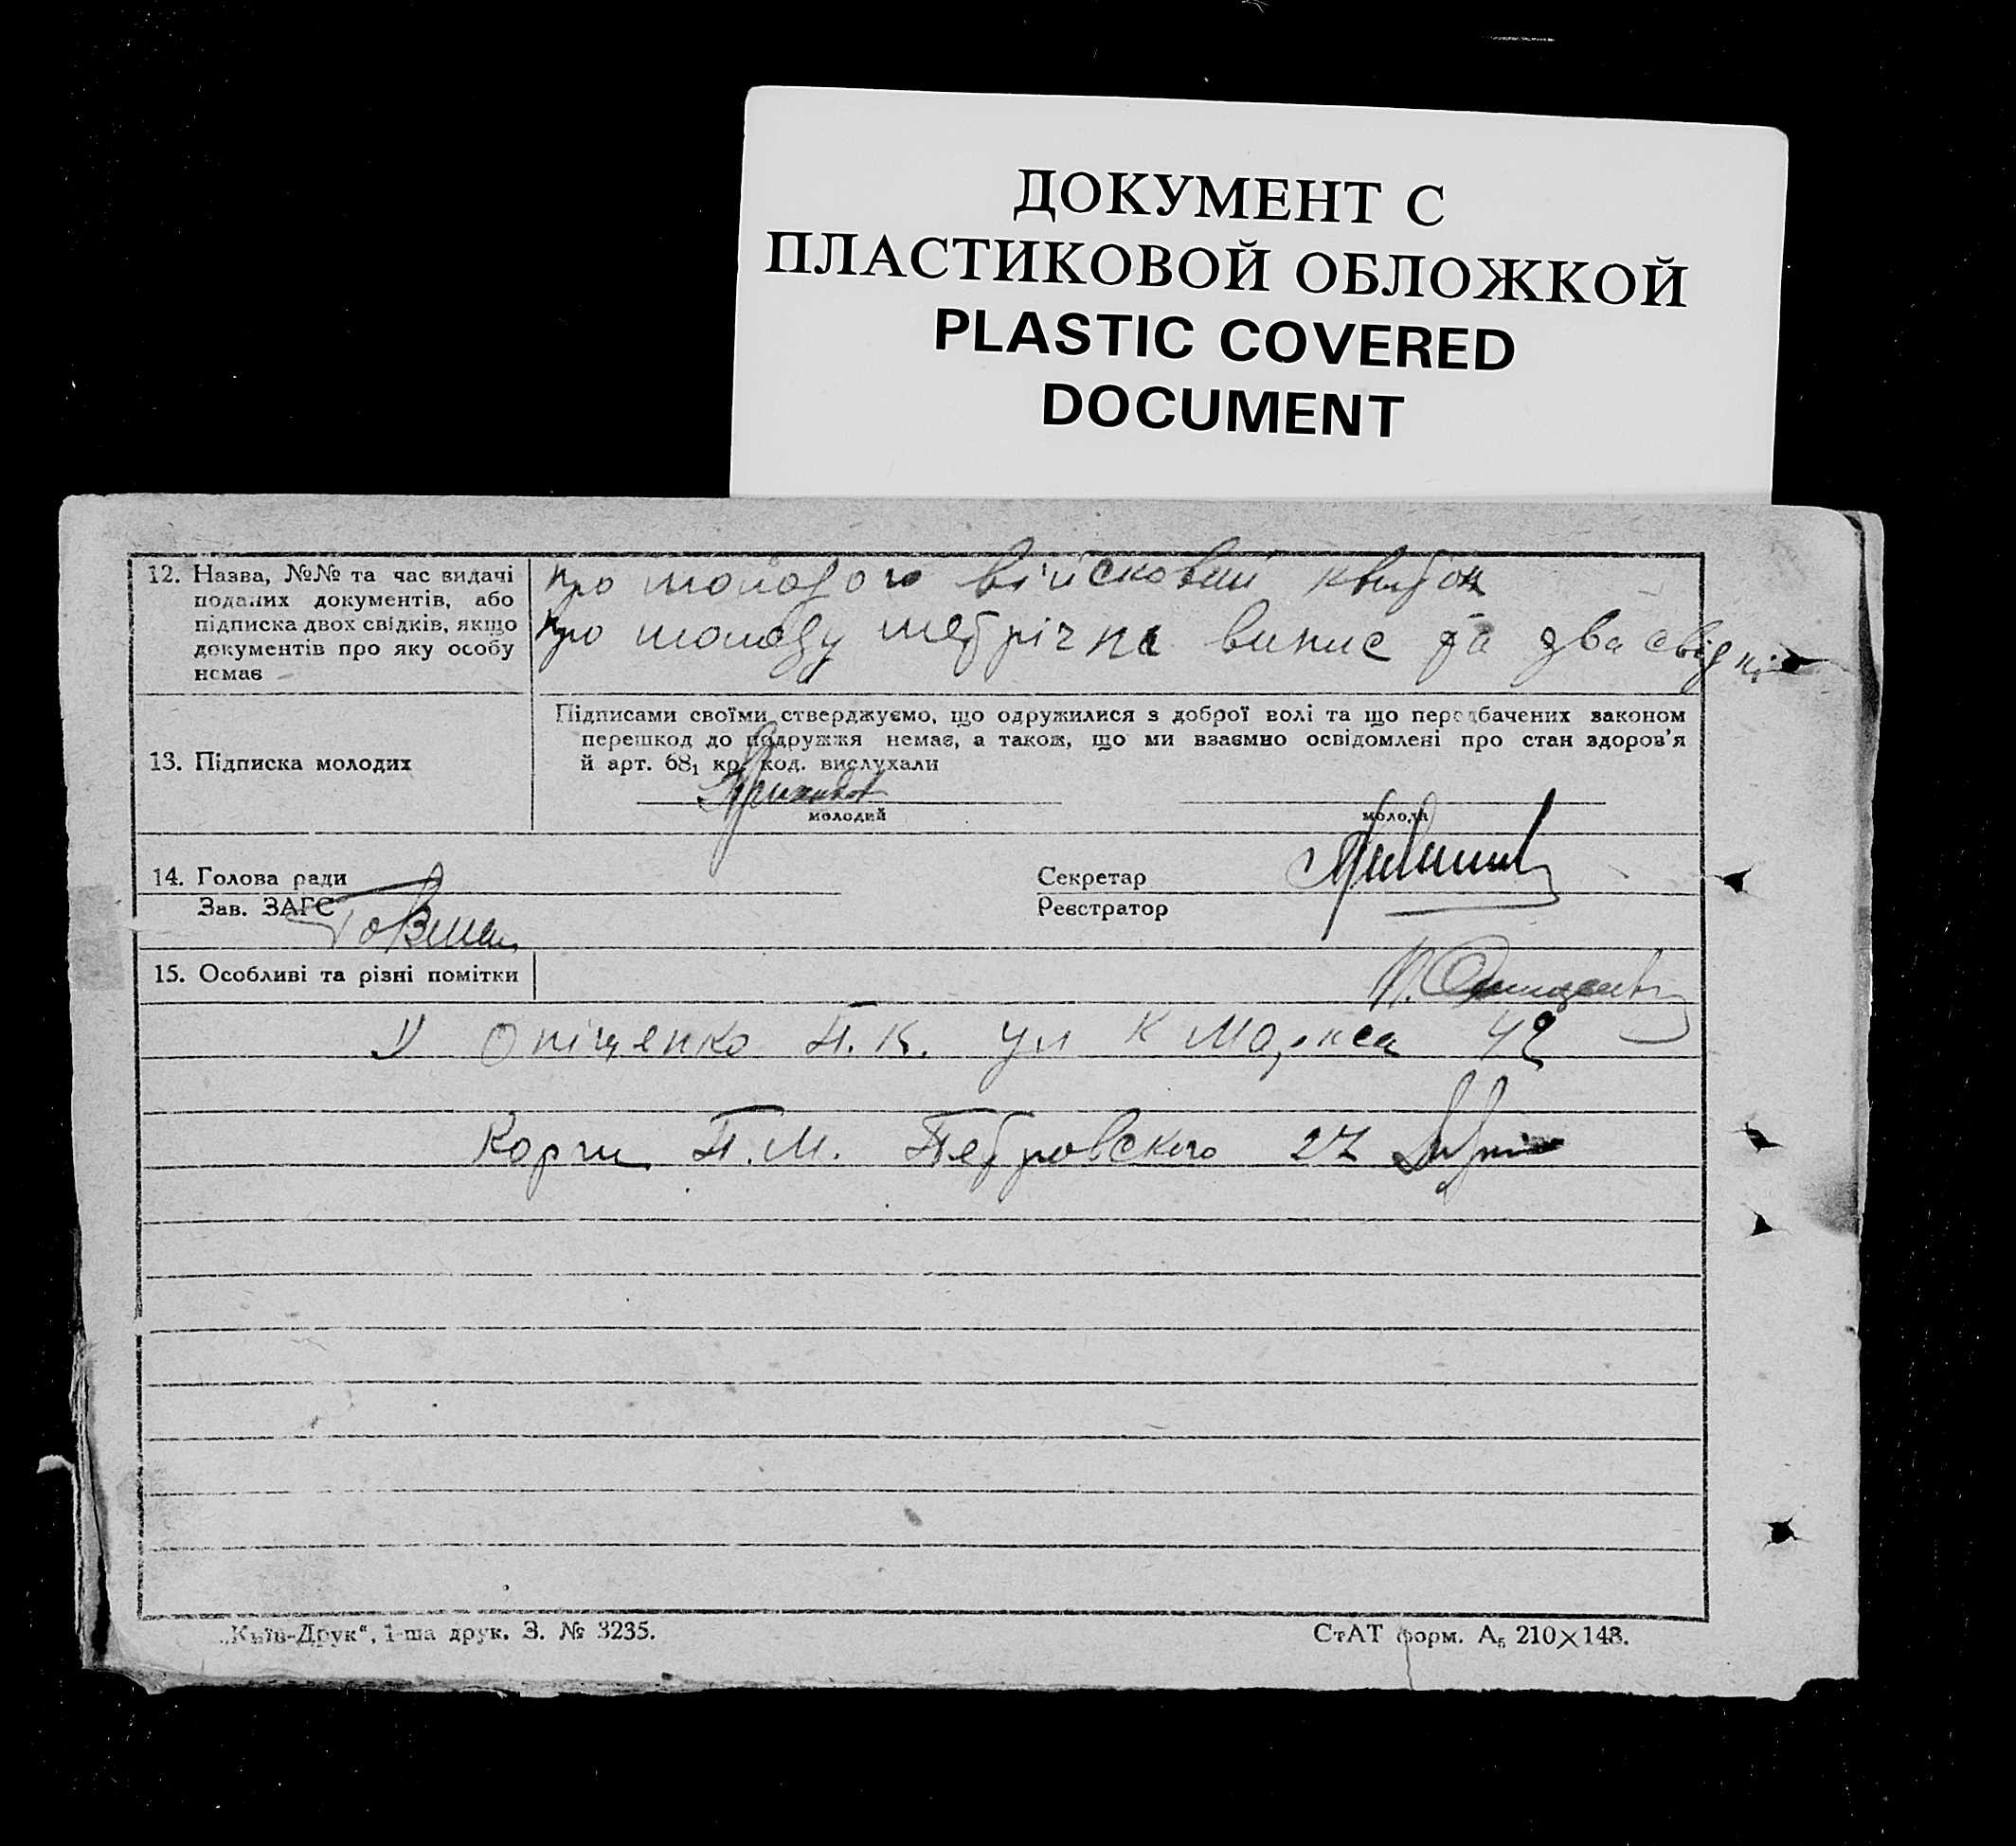 ДОКУМЕНТ С
ПЛАСТИКОВОЙ ОБЛОЖКОЙ
PLASTIC COVERED
DOCUMENT
12. Назва, №№ та час видачі
поданих документів, або
підписка двох свідків, якщо
документів про яку особу
немає
про молодого військовий квиток
про молоду метрічна випис та два свідкі
13. Підписка молодих
Підписами своїми стверджуємо, що одружилися з доброї волі та що передбачених законом
перешкод до подружжя немає, а також, що ми взаємно освідомлені про стан здоров'я
й арт. 68₁ кр. код. вислухали
молодий
молода
14. Голова ради
Секретар
Зав. ЗАГС
Реєстратор
15. Особливі та різні помітки
Оніщенко П. К. ул К Маркса 42
П. М. Петровского 27
„Київ-Друк“, 1-ша друк. З. № 3235.
СтАТ форм. А₅ 210×148.